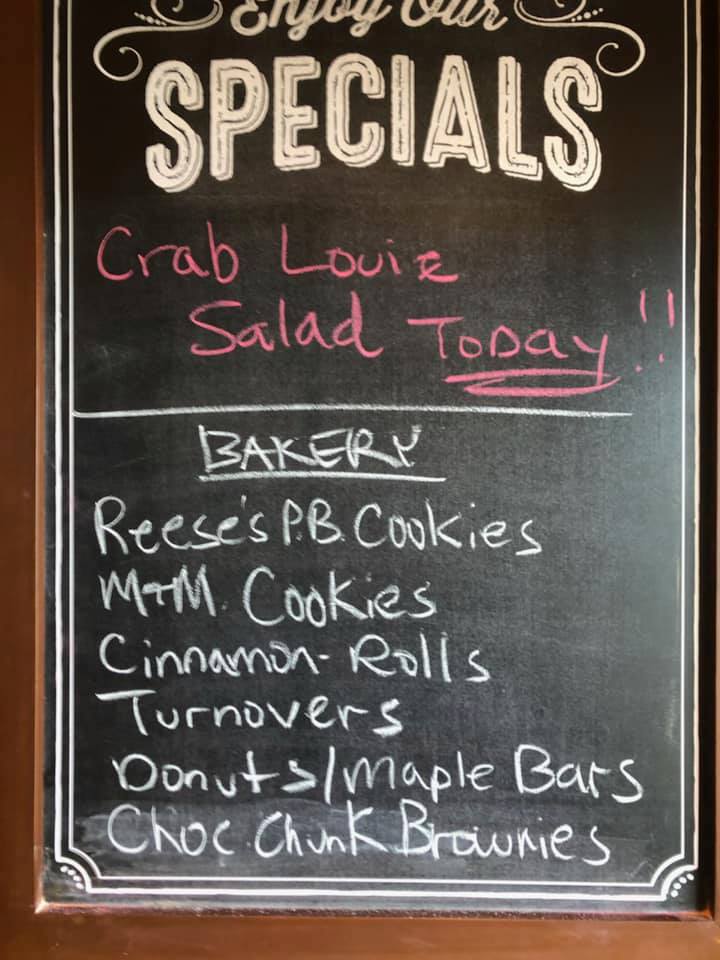 Enjoy Our
SPECIALS
Crab Louie
Salad Today!!
BAKERY
Reese's P.B. Cookies
M+M. Cookies
Cinnamon-Rolls
Turnovers
Donuts/Maple Bars
Choc. Chunk Brownies